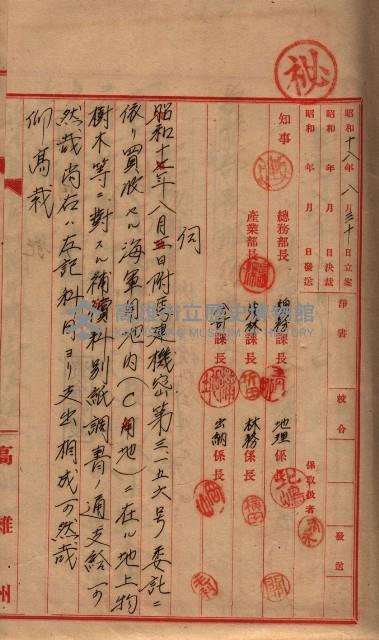 秘
昭和十八年八月三十日立案
昭和 年 月 日決裁
昭和 年 月 日發送
淨書
校合
發送
知事
總務部長
產業部長
課長
地理係長
係取扱者
農林課長
林務係長
會計課長
出納係長
伺
昭和十七年八月五日附馬建機密第三一五六号委託ニ
依リ買收セル海軍用地内(C用地)ニ在ル地上物
樹木等ニ對スル補償料別紙調書ノ通支給可
然哉尚右ハ左記科目ヨリ支出相成可然哉
仰高裁
高雄州
高雄市立歷史博物館
KAOHSIUNG MUSEUM OF HISTORY